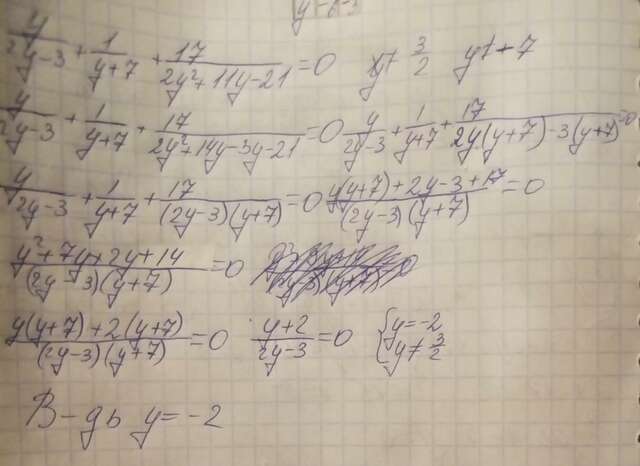 y/(2y-3) + 1/(y+7) + 17/(2y²+11y-21) = 0   y≠ 3/2   y≠ -7
y/(2y-3) + 1/(y+7) + 17/(2y²+14y-3y-21) = 0   y/(2y-3) + 1/(y+7) + 17/(2y(y+7)-3(y+7)) = 0
y/(2y-3) + 1/(y+7) + 17/((2y-3)(y+7)) = 0   (y(y+7)+2y-3+17)/((2y-3)(y+7)) = 0
(y²+7y+2y+14)/((2y-3)(y+7)) = 0
(y(y+7)+2(y+7))/((2y-3)(y+7)) = 0   (y+2)/(2y-3) = 0   { y=-2
y≠ 3/2
В-дь y= -2